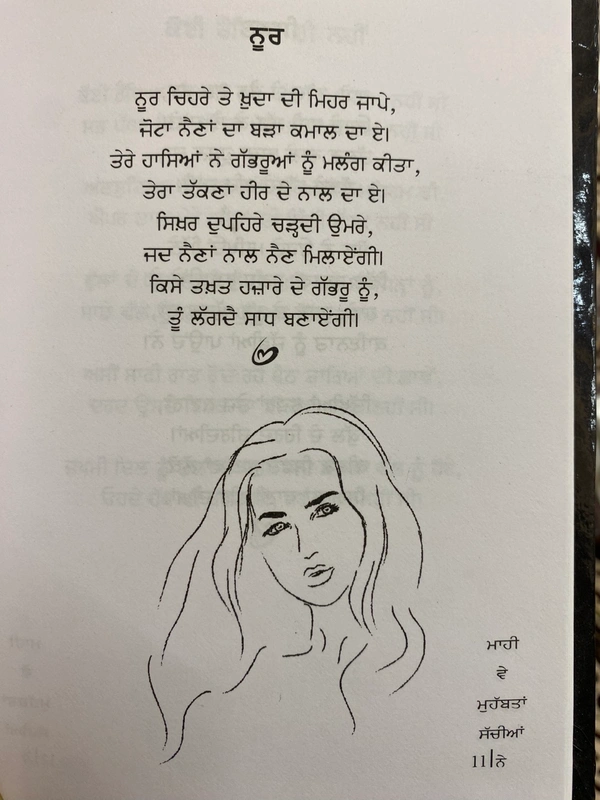 ਨੂਰ
ਨੂਰ ਚਿਹਰੇ ਤੇ ਖ਼ੁਦਾ ਦੀ ਮਿਹਰ ਜਾਪੇ,
ਜੋਟਾ ਨੈਣਾਂ ਦਾ ਬੜਾ ਕਮਾਲ ਦਾ ਏ।
ਤੇਰੇ ਹਾਸਿਆਂ ਨੇ ਗੱਭਰੂਆਂ ਨੂੰ ਮਲੰਗ ਕੀਤਾ,
ਤੇਰਾ ਤੱਕਣਾ ਹੀਰ ਦੇ ਨਾਲ ਦਾ ਏ।
ਸਿਖ਼ਰ ਦੁਪਹਿਰੇ ਚੜ੍ਹਦੀ ਉਮਰੇ,
ਜਦ ਨੈਣਾਂ ਨਾਲ ਨੈਣ ਮਿਲਾਏਂਗੀ।
ਕਿਸੇ ਤਖ਼ਤ ਹਜ਼ਾਰੇ ਦੇ ਗੱਭਰੂ ਨੂੰ,
ਤੂੰ ਲੱਗਦੈ ਸਾਧ ਬਣਾਏਂਗੀ।
ਮਾਹੀ
ਵੇ
ਮੁਹੱਬਤਾਂ
ਸੱਚੀਆਂ
11|ਨੇ